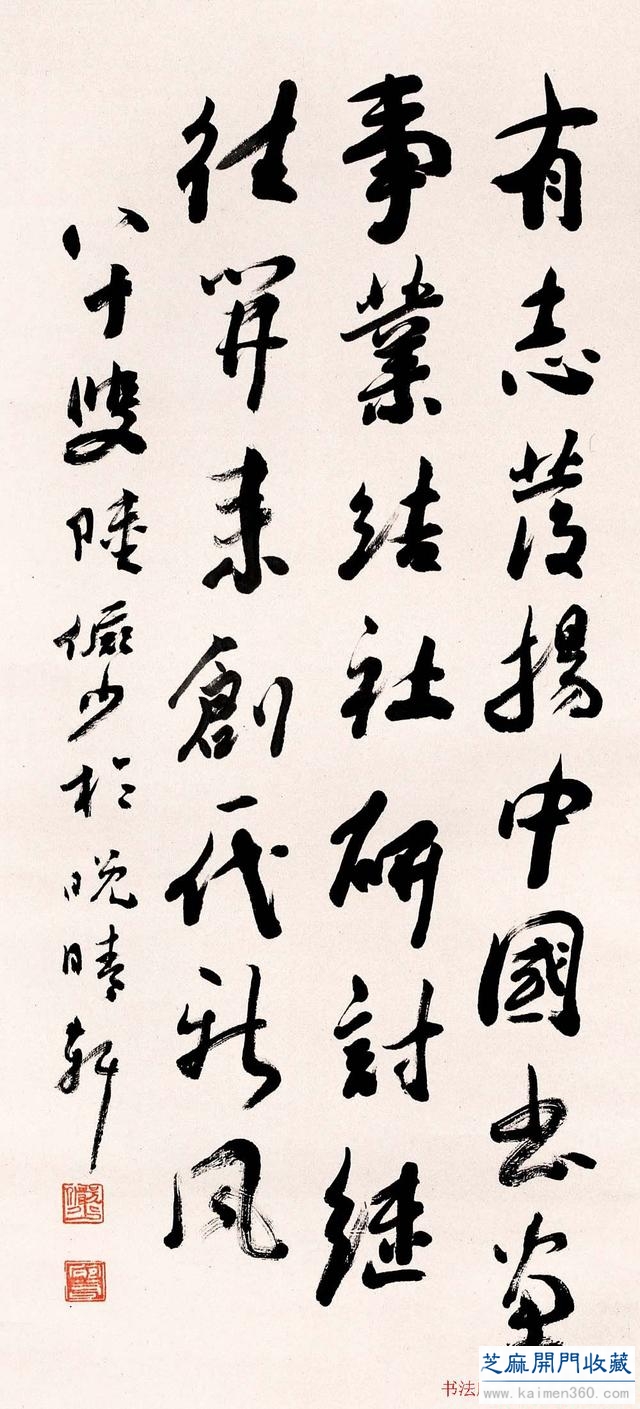 有志发揚中國书画
事業结社研討继
往开来創一代新风
八十叟陸儼少於晚晴轩
芝麻開門收藏
www.kaimen360.com
书法